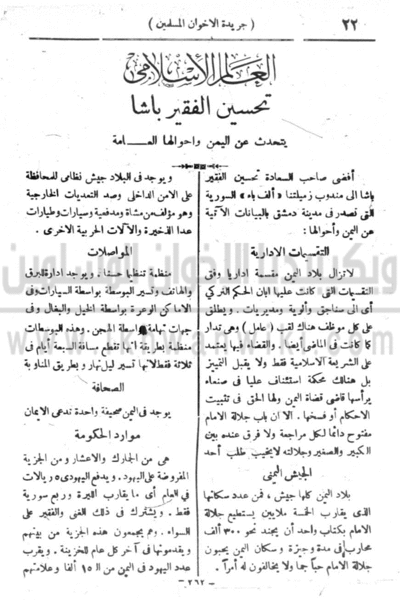 ( جريدة الاخوان المسلمين )
٢٢
العالم الاسلامى
تحسين الفقير باشا
يتحدث عن اليمن واحوالها العامة
أفضى صاحب السعادة تحسين الفقير
باشا الى مندوب زميلتنا « ألف باء » السورية
التى تصدر فى مدينة دمشق بالبيانات الآتية
عن اليمن وأحوالها :
التقسيمات الادارية
لا تزال بلاد اليمن مقسمة اداريا وفق
التقسيمات التى كانت عليها ابان الحكم التركي
أى الى سناجق وألوية ومديريات . ويطلق
على كل موظف هناك لقب ( عامل ) وهى تدار
كما كانت فى الماضى أيضا . والقضاء فيها يعتمد
على الشريعة الاسلامية فقط ولا يقبل التمييز
بل هنالك محكمة استئناف عليا فى صنعاء
يرأسها قاضى قضاة اليمن ولها الحق فى تثبيت
الاحكام أو فسخها . الا ان باب جلالة الامام
مفتوح دائما لكل مراجعة ولا فرق عنده بين
الكبير والصغير وجلالته لا يخيب طلب أحد
الجيش اليمنى
بلاد اليمن كلها جيش ، فمن عدد سكانها
الذى يقارب الخمسة ملايين يستطيع جلالة
الامام بكتاب واحد أن يجند نحو ٣٠٠ ألف
محارب فى مدة وجيزة وسكان اليمن يحبون
جلالة الامام حبا جما ولا يخالفون له أمرا .
ويوجد فى البلاد جيش نظامى للمحافظة
على الامن الداخلى وصد التعديات الخارجية
وهو مؤلف من مشاة ومدفعية وسيارات وطيارات
عدا الذخيرة والآلات الحربية الاخرى .
المواصلات
منظمة تنظيما حسنا . ويوجد ادارة البرق
والهاتف وتسير البوسطة بواسطة السيارات وفى
الاماكن الوعرة بواسطة الخيل والبغال وفى
جهات تهامة بواسطة الهجن . وهذه البوسطات
منظمة بطريقة انها تقطع مسافة السبعة أيام فى
ثلاثة فقط لانها تسير ليل نهار وبطريق المناوبة
الصحافة
يوجد فى اليمن صحيفة واحدة تدعى الايمان
موارد الحكومة
هى من الجمارك والاعشار ومن الجزية
المفروضة على اليهود . ويدفع اليهودى ٥ ريالات
فى العام أى ما يقارب الليرة وربع سورية
فقط . ويشترك فى ذلك الغنى والفقير على
السواء . وهم يجمعون هذه الجزية من بينهم
ويقدمونها فى آخر كل عام للخزينة . ويقرب
عدد اليهود فى اليمن من الـ ١٥ ألفا وعلامتهم
- ٢٦٢ -